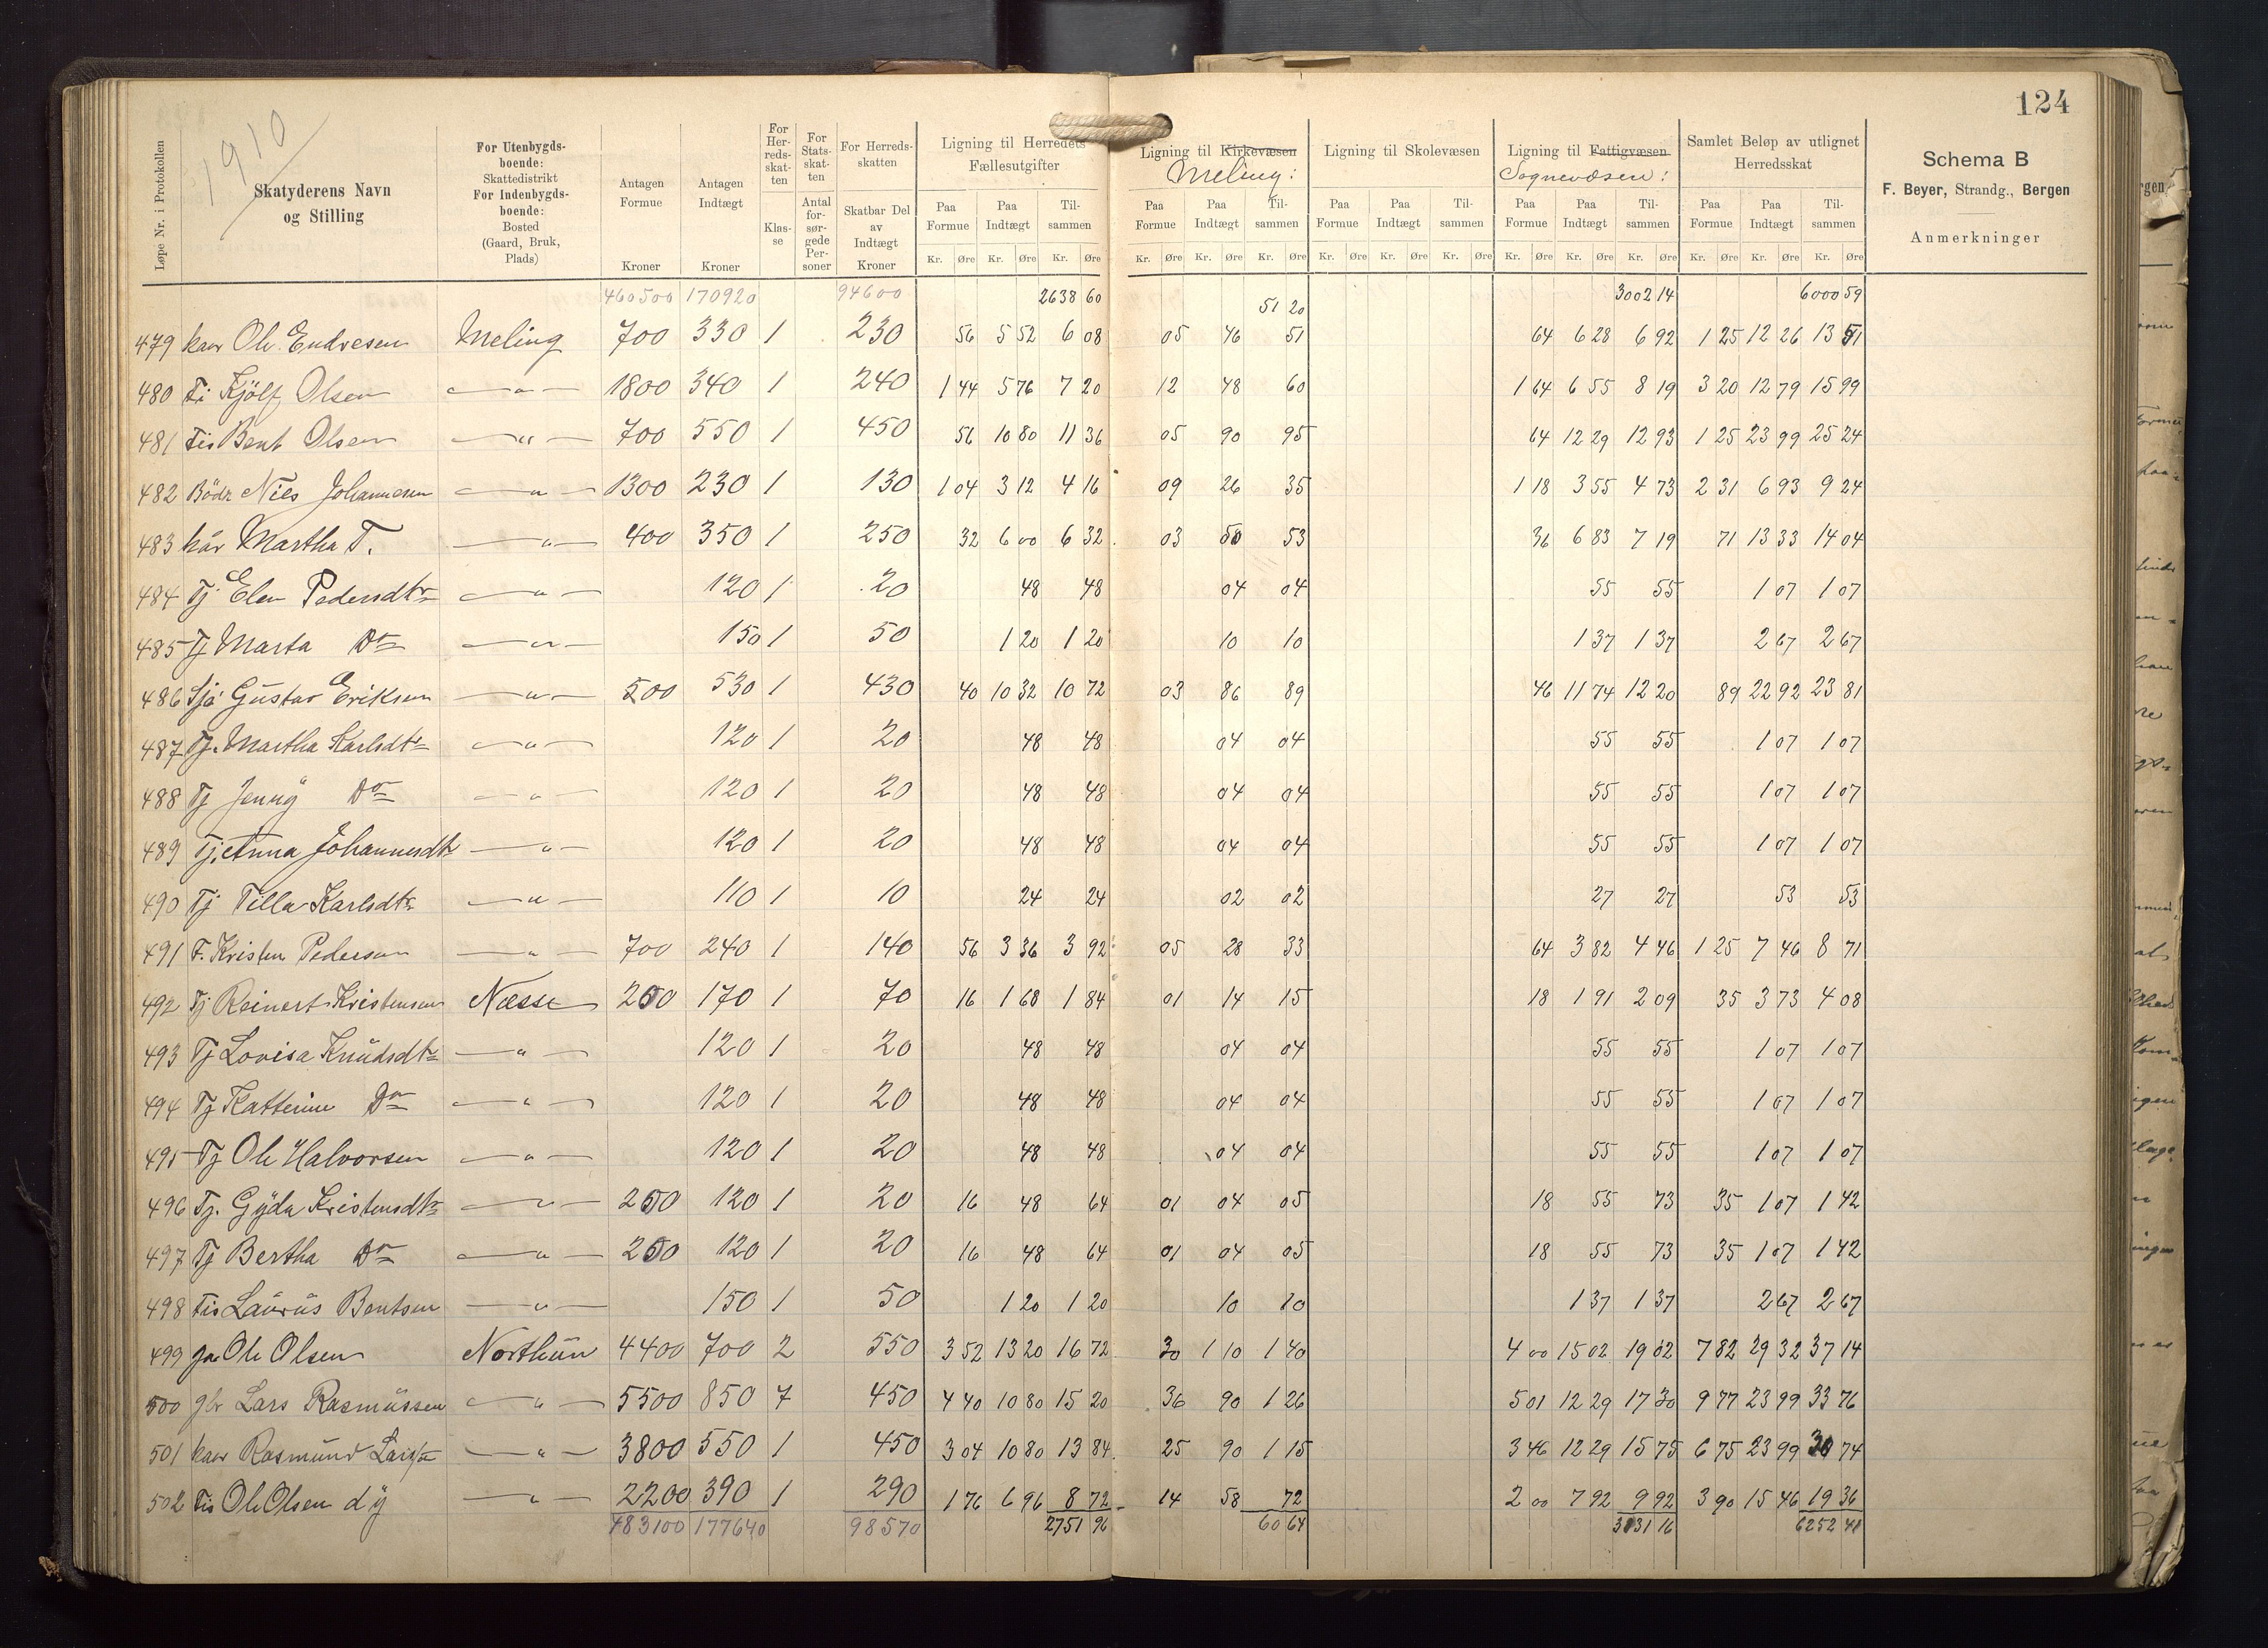 124
1910
Løpe Nr. i Protokollen
Skatyderens Navn og Stilling
For Utenbygdsboende: Skattedistrikt For Indenbygdsboende: Bosted (Gaard, Bruk, Plads)
Antagen Formue Kroner
Antagen Indtægt Kroner
For Herredsskatten Klasse
For Statsskatten Antal forsørgede Personer
For Herredsskatten Skatbar Del av Indtægt Kroner
Ligning til Herredets Fællesutgifter
Ligning til Kirkevæsen
Meling:
Ligning til Skolevæsen
Ligning til Fattigvæsen
Sognevæsen:
Samlet Beløp av utlignet Herredsskat
Schema B
F. Beyer, Strandg., Bergen
Anmerkninger
Paa Formue Paa Indtægt Tilsammen Paa Formue Paa Indtægt Tilsammen Paa Formue Paa Indtægt Tilsammen Paa Formue Paa Indtægt Tilsammen Paa Formue Paa Indtægt Tilsammen
Kr. Øre Kr. Øre Kr. Øre Kr. Øre Kr. Øre Kr. Øre Kr. Øre Kr. Øre Kr. Øre Kr. Øre Kr. Øre Kr. Øre Kr. Øre Kr. Øre Kr. Øre
460500 170920 94600 2638 60 51 20 3002 14 6000 59
479 kaar Ole Endresen Meling 700 330 1 230 56 5 52 6 08 05 46 51 64 6 28 6 92 1 25 12 26 13 51
480 Fi Kjölf Olsen — " — 1800 340 1 240 1 44 5 76 7 20 12 48 60 1 64 6 55 8 19 3 20 12 79 15 99
481 Fis Bent Olsen — " — 700 550 1 450 56 10 80 11 36 05 90 95 64 12 29 12 93 1 25 23 99 25 24
482 Bödk Nils Johannesen — " — 1300 230 1 130 1 04 3 12 4 16 09 26 35 1 18 3 55 4 73 2 31 6 93 9 24
483 kår Martha T. — " — 400 350 1 250 32 6 00 6 32 03 50 53 36 6 83 7 19 71 13 33 14 04
484 Tj Elen Pedersdtr — " — 120 1 20 48 48 04 04 55 55 1 07 1 07
485 Tj Marta Do — " — 150 1 50 1 20 1 20 10 10 1 37 1 37 2 67 2 67
486 Sjö Gustav Eriksen — " — 500 530 1 430 40 10 32 10 72 03 86 89 46 11 74 12 20 89 22 92 23 81
487 Tj. Martha Karlsdtr — " — 120 1 20 48 48 04 04 55 55 1 07 1 07
488 Tj Jenny Do — " — 120 1 20 48 48 04 04 55 55 1 07 1 07
489 Tj. Anna Johannesdtr — " — 120 1 20 48 48 04 04 55 55 1 07 1 07
490 Tj Tilla Karlsdtr — " — 110 1 10 24 24 02 02 27 27 53 53
491 F. Kristen Pedersen — " — 700 240 1 140 56 3 36 3 92 05 28 33 64 3 82 4 46 1 25 7 46 8 71
492 Tj Reinert Kristensen Næsse 200 170 1 70 16 1 68 1 84 01 14 15 18 1 91 2 09 35 3 73 4 08
493 Tj Lovisa Knudsdtr — " — 120 1 20 48 48 04 04 55 55 1 07 1 07
494 Tj Katterine Do — " — 120 1 20 48 48 04 04 55 55 1 07 1 07
495 Tj Ole Halvorsen — " — 120 1 20 48 48 04 04 55 55 1 07 1 07
496 Tj. Gyda Kristensdtr — " — 200 120 1 20 16 48 64 01 04 05 18 55 73 35 1 07 1 42
497 Tj Bertha Do — " — 200 120 1 20 16 48 64 01 04 05 18 55 73 35 1 07 1 42
498 Fis Laurus Bentsen — " — 150 1 50 1 20 1 20 10 10 1 37 1 37 2 67 2 67
499 Ole Olsen Northun 4400 700 2 550 3 52 13 20 16 72 30 1 10 1 40 4 00 15 02 19 02 7 82 29 32 37 14
500 gbr Lars Rasmussen — " — 5500 850 7 450 4 40 10 80 15 20 36 90 1 26 5 01 12 29 17 30 9 77 23 99 33 76
501 kaar Rasmund Larss — " — 3800 550 1 450 3 04 10 80 13 84 25 90 1 15 3 46 12 29 15 75 6 75 23 99 30 74
502 Fis Ole Olsen d y — " — 2200 390 1 290 1 76 6 96 8 72 14 58 72 2 00 7 92 9 92 3 90 15 46 19 36
483100 177640 98570 2751 96 60 64 3131 16 6252 41